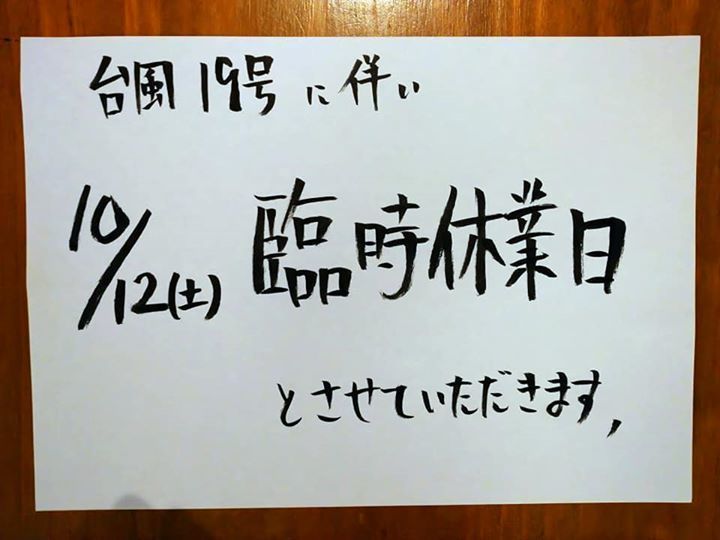 台風19号に伴い
10/12(土) 臨時休業日
とさせていただきます,